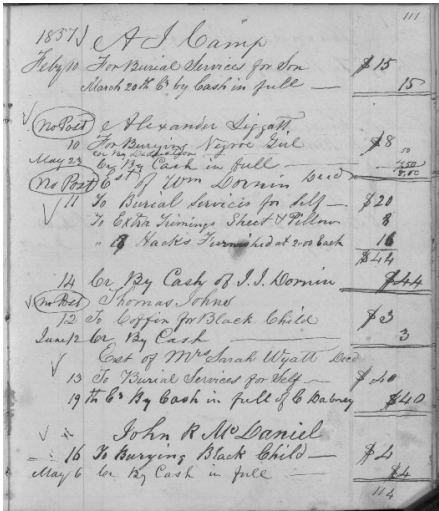 111
1857 A J Camp
Feby 10 For Burial Services for Son $15
March 20th Cr by Cash in full 15
No Post Alexander Liggatt
10 For Burying Negroe Girl $8
Cr By Deduction 50
May 23 Cr By Cash in full 7.50
8.00
No Post Est of Wm Dornin Decd
11 To Burial Services for Self $20
To Extra Trimings Sheet & Pillow 8
" 8 Hacks Furnished at 2.00 Each 16
$44
14 Cr By Cash of J. J. Dornin $44
No Post Thomas Johns
12 To Coffin for Black Child $3
June 12 Cr By Cash 3
Est of Mrs Sarah Wyatt Decd
13 To Burial Services for Self $40
19th Cr By Cash in full of C Dabney $40
John R McDaniel
" 16 To Burying Black Child $4
May 6 Cr By Cash in full $4
114